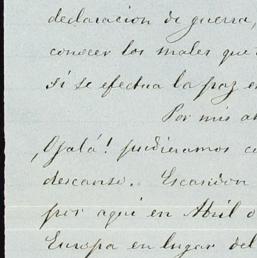 declaracion de guerra,
conocer los males que
si se efectua la paz en
Por mis
¡Ojalá! pudieramos
descanso. Escandon
por aqui en Abril o
Europa en lugar del